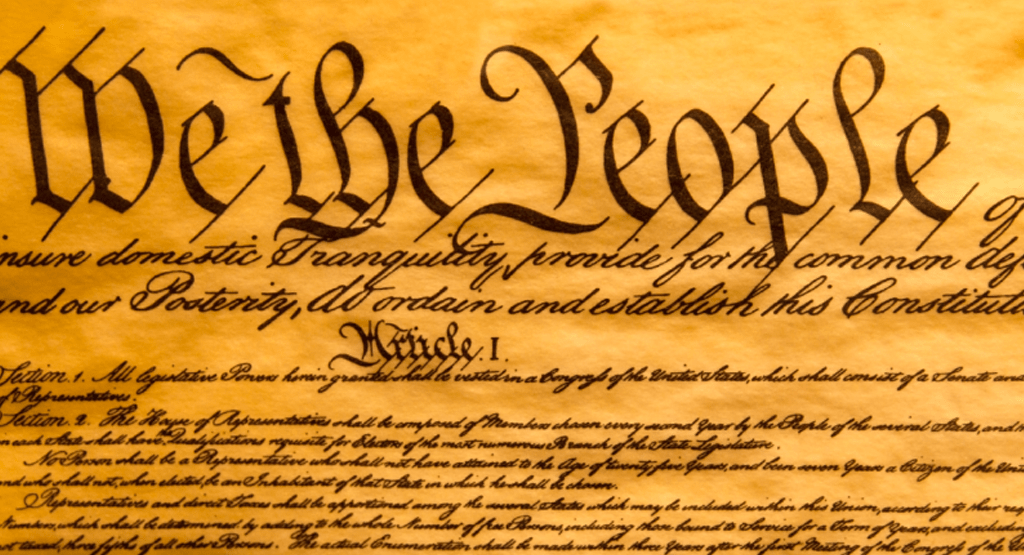 We the People of
insure domestic Tranquility, provide for the common def
and our Posterity, do ordain and establish this Constituti
Article. I.
Section. 1. All legislative Powers herein granted shall be vested in a Congress of the United States, which shall consist of a Senate and
of Representatives.
Section. 2. The House of Representatives shall be composed of Members chosen every second Year by the People of the several States, and
in each State shall have the Qualifications requisite for Electors of the most numerous Branch of the State Legislature.
No Person shall be a Representative who shall not have attained to the Age of twenty five Years, and been seven Years a Citizen of the Unit
and who shall not, when elected, be an Inhabitant of that State in which he shall be chosen.
Representatives and direct Taxes shall be apportioned among the several States which may be included within this Union, according to their
Numbers, which shall be determined by adding to the whole Number of free Persons, including those bound to Service for a Term of Years, and excludin
not taxed, three fifths of all other Persons. The actual Enumeration shall be made within three Years after the first Meeting of the Congress of the